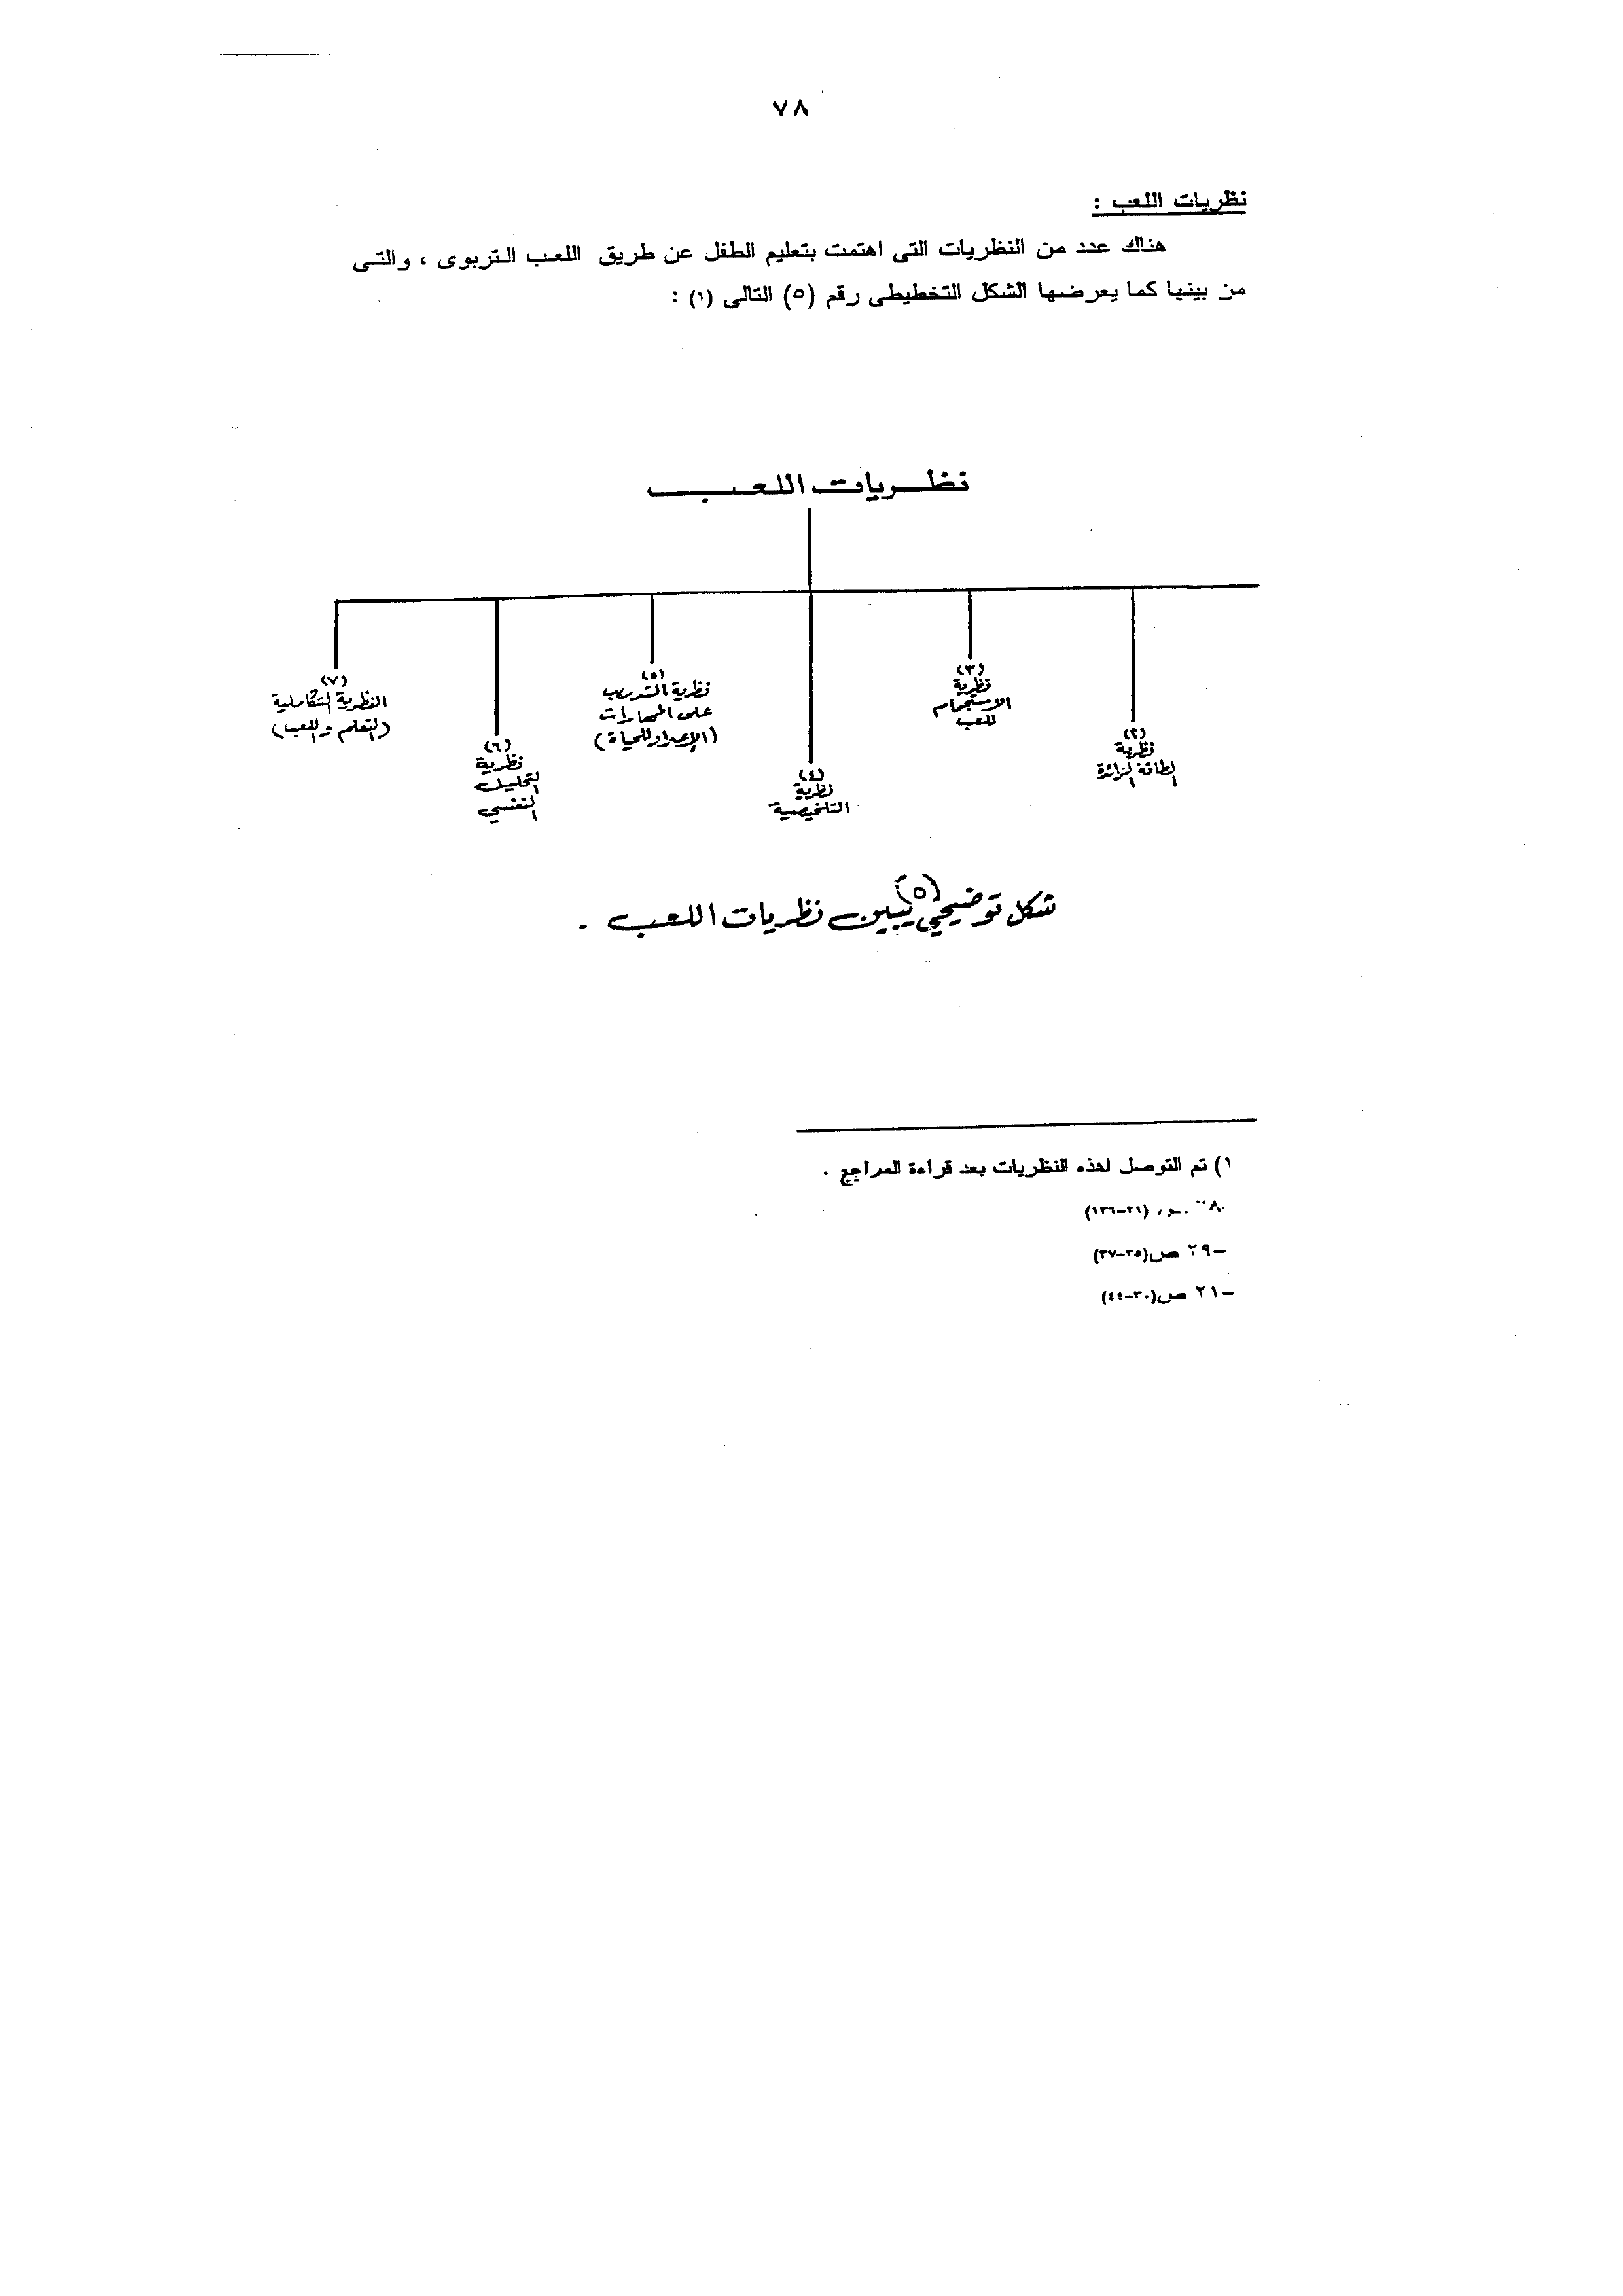 ٧٨
نظريات اللعب :
هناك عدد من النظريات التى اهتمت بتعليم الطفل عن طريق اللعب التربوى ، والتى
من بينها كما يعرضها الشكل التخطيطى رقم (٥) التالى (١) :
نظريات اللعب
(٢)
نظرية
الطاقة الزائدة
(٣)
نظرية
الاستجمام
للعب
(٤)
نظرية
التلخيصية
(٥)
نظرية التدريب
على المهارات
(الإعداد للحياة)
(٦)
نظرية
التحليل
النفسي
(٧)
النظرية التكاملية
(التعلم واللعب)
شكل توضيحي (٥) يبين نظريات اللعب .
١) تم التوصل لهذه النظريات بعد قراءة المراجع .
(٢١-١٣٦)
-٢٩ ص(٣٥-٣٧)
-٢١ ص(٣٠-٤٤)